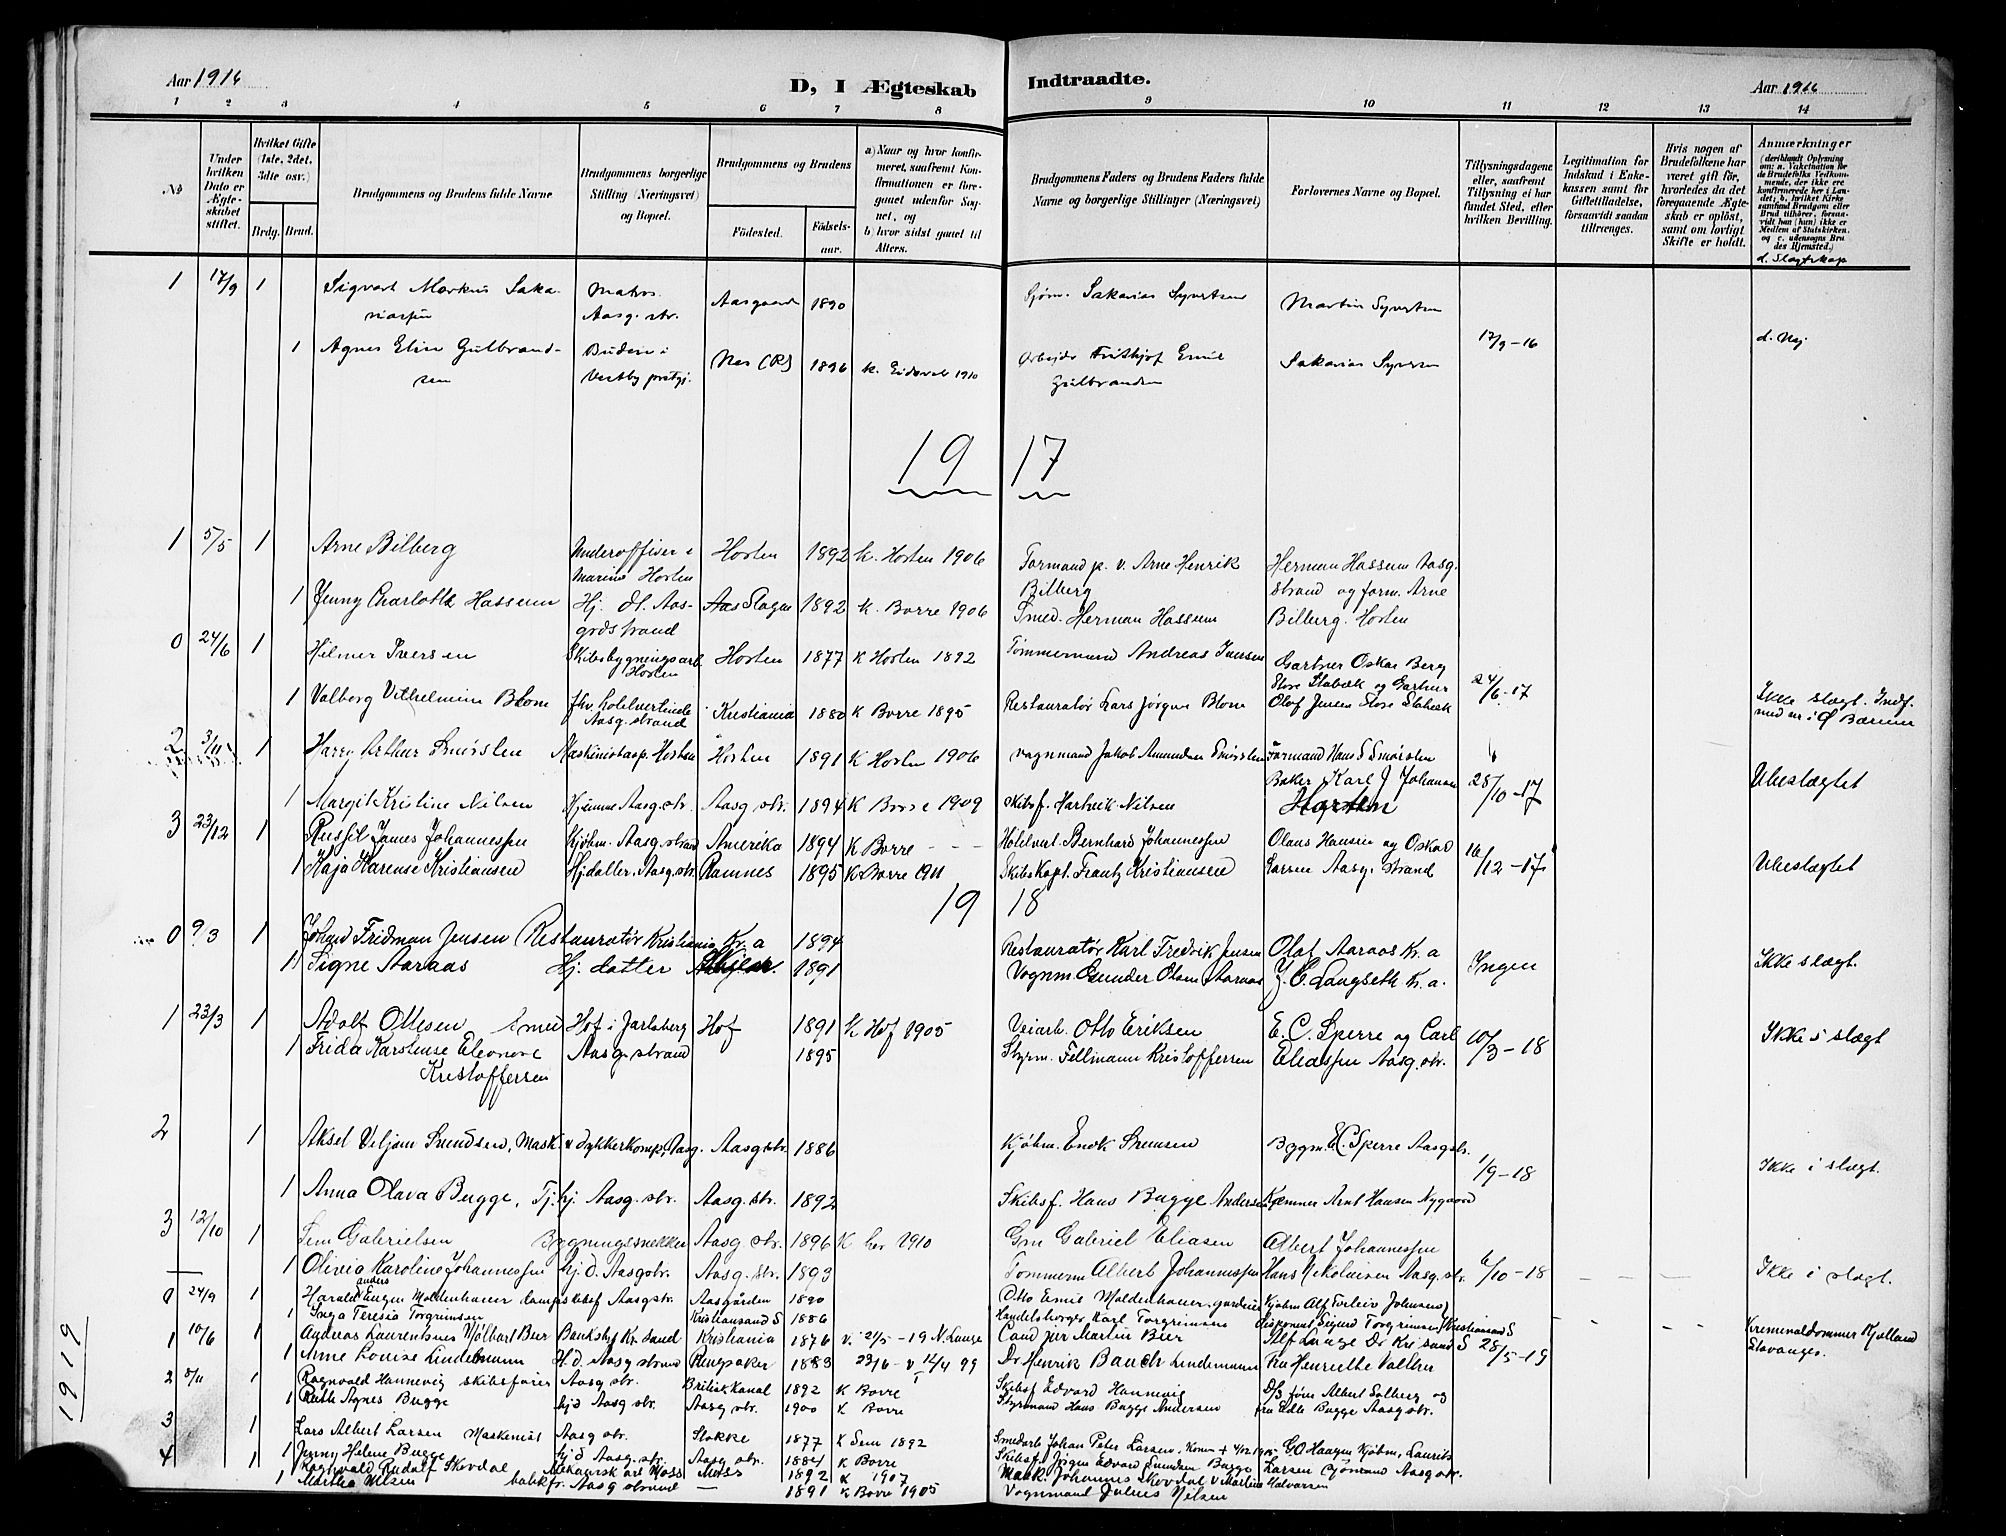 Aar 1916
D, I Ægteskab Indtraadte.
Aar 1916
1 2 3 4 5 6 7 8 9 10 11 12 13 14
No
Under hvilken Dato er Ægteskabet stiftet.
Hvilket Gifte (1ste, 2det, 3dte osv.)
Brdg. Brud.
Brudgommens og Brudens fulde Navne
Brudgommens borgerlige Stilling (Næringsvei) og Bopæl.
Brudgommens og Brudens
Fødested. Fødselsaar.
a) Naar og hvor konfirmeret, saafremt Konfirmationen er foregaaet udenfor Sognet, og
b) hvor sidst gaaet til Alters.
Brudgommens Faders og Brudens Faders fulde Navne og borgerlige Stillinger (Næringsvei)
Forlovernes Navne og Bopæl.
Tillysningsdagene eller, saafremt Tillysning ei har fundet Sted, efter hvilken Bevilling.
Legitimation for Indskud i Enkekassen samt for Giftetilladelse, forsaavidt saadan tiltrænges.
Hvis nogen af Brudefolkene har været gift før, hvorledes da det foregaaende Ægteskab er opløst, samt om lovligt Skifte er holdt.
Anmærkninger (deriblandt Oplysning om: a. Vakcination for de Brudefolks Vedkommende, der ikke ere konfirmerede her i Landet; b. hvilket Kirkesamfund Brudgom eller Brud tilhører, forsaavidt han (hun) ikke er Medlem af Statskirken. og c. udensogns Brudes Hjemsted.)
d. Slægtskap
1 17/9 1 Sigvart Markus Sakariassen Matros Aasg. str. Aasgaard 1890 Sjöm. Sakarias Syvertsen Martin Syvertsen
1 Agnes Elise Gulbrandsen Budeie i Vestby prstgj. Nes (R) 1896 k. Eidsvol 1910 Arbejder Frithjof Emil Gulbrandsen Sakarias Syversen 17/9-16 d. Nej
1917
1 5/5 1 Arne Bilberg Underofficer i Marine Horten Horten 1892 k. Horten 1906 Formand p. v. Arne Henrik Bilberg Herman Hassum Aasgstrand og form. Arne Bilberg. Horten
1 Jenny Charlotte Hassum Hj. dt. Aasgrdstrand Aas Slagen 1892 k. Borre 1906 Smed. Herman Hassum
0 24/6 1 Hilmer Iversen Skibsbygningsarb. Horten Horten 1877 K Horten 1892 Tømmermand Andreas Iversen Gartner Oskar Berg Store Stabæk og Gartner Olof Jensen Store Stabæk 24/6-17
1 Valborg Vilhelmine Blom fhv. hotelvertinde Aasg. strand Kristiania 1880 K Borre 1895 Restauratør Lars Jørgen Blom Ikke slægt. Indf. med nr i Ø Bærum
2 3/11 1 Harry Arthur Smørsten Maskinistasp. Horten Horten 1891 K Horten 1906 Vognmand Jakob Amundsen Smørsten Formand Hans S Smørsten Baker Karl J Johansen Horten 28/10-17 Ubeslægtet
1 Margit Kristine Nilsen Hjemme Aasg. str. Aasg str. 1894 K Borre 1909 Skibsf. Hartvik Nilsen
3 23/12 1 Russel James Johannessen Kjöbm. Aasg. strand Amerika 1894 K Borre - - - Hotelvert Bernhard Johannessen Olaus Hansen og Oskar Larsen Aasg. strand 16/12-17
1 Kaja Karense Kristiansen Hj.datter. Aasg. str. Ramnes 1895 K Borre 1911 Skibskapt. Frantz Kristiansen Ubeslægtet
1918
0 9/3 1 Johan Fridman Jensen Restauratør Kristiania Kr. a 1894 Restauratör Karl Fredrik Jensen Olaf Aaraas Kr. a
1 Signe Aaraas Hj. datter 1891 Vognm Gunder Olsen Aaraas J. C. Langseth Kr. a. Ingen Ikke slægt.
1 23/3 1 Adolf Ottesen Smed Hof i Jarlsberg Hof 1891 K Hof 1905 Veiarb. Otto Eriksen E. C. Sperre og Carl Eliassen Aasg. str. 10/3-18 Ikke i slægt
1 Frida Karstense Eleonore Kristoffersen Aasg. strand 1895 Styrm. Tellmann Kristoffersen
2 1 Aksel Viljam Svendsen, Mask v. dykkerkomp, Aasg. Aasgstr. 1886 Kjöbm. Enok Svensen Byggm. E C Sperre Aasgstr. 1/9-18 Ikke i slægt.
1 Anna Olava Bugge, Tj. hj. Aasg. str. Aasg. str. 1892 Skibsf. Hans Bugge Andersen Kæmner Arnt Hansen Nygaard
3 12/10 1 Sem Gabrielsen Bygningssnekker Aasg. str. 1896 K her 1910 Grn Gabriel Eliasen Albert Johannessen
1 Olivia Karoline Johannessen hj. d. Aasgstr. Aasg. str. 1893 Tömmerm Albert Johannessen Hans Nikolaisen Aasg. str. 6/10-18 Ikke i slægt.
1919
0 24/9 1 Harald Eugen Moldenhauer Aasgstr. Aasgården 1890 Otto Emil Moldenhauer. gardein Kjöbm Alf Torleiv Johnsen
1 Inga Teresia Torgrimsen Kristiansand S 1886 Handelsborger Karl Torgrimsen Disponent Sigurd Torgrimsen, Kristiansand S
1 10/6 1 Andreas Laurentius Mølbart Bier Bankchef Kr. sand Kristiania 1876 v. 21/5-19 N. Lange Cand jur Martin Bier Alf Lange Dr Kr. sand S 28/5-19 Kriminaldommer Kjelland Stavanger.
1 Anne Louise Lindemann H. d. Aasg strand Ringsaker 1883 Dr Henrik Bauch Lindemann Fru Henriette Valther
2 5/11 1 Ragnvald Hannevig skibsfører Aasg str. Britisk Kanal 1892 K Borre Skibsf Edvard Hannevig D/S fører Albert Solberg og
1 Ruth Agnes Bugge hjd Aasg str. Aasg str. 1900 K Borre Styrmand Hans Bugge Andersen fru Edle Bugge Aasg str.
3 1 Lars Albert Larsen Maskinist Aasg str. Stokke 1877 K Sem 1892 Smedarb Johan Peter Larsen, G O Haagen Kjöbm, Laurits
1 Jenny Helene Bugge hj d. Aasg. str. Aasg str. 1884 K Borre Skibsf. Jørgen Edvard Svendsen Bugge Larsen Aasg str.
4 1 Ragnvald Rudolf Skovdal Mekanisk arb Moss Moss 1892 K 1907 Mask. Johannes Skovdal v Martine Halvorsen
1 Martha Nilsen butikfr. Aasg strand — 1891 K Borre 1905 Vognmand Julius Nilsen